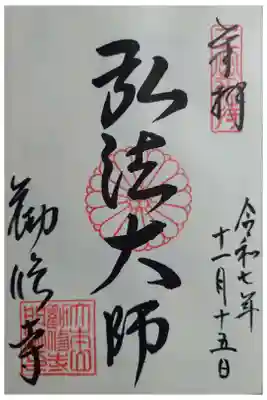 奉拝
令和七年
十一月十五日
弘法大師
勧修寺